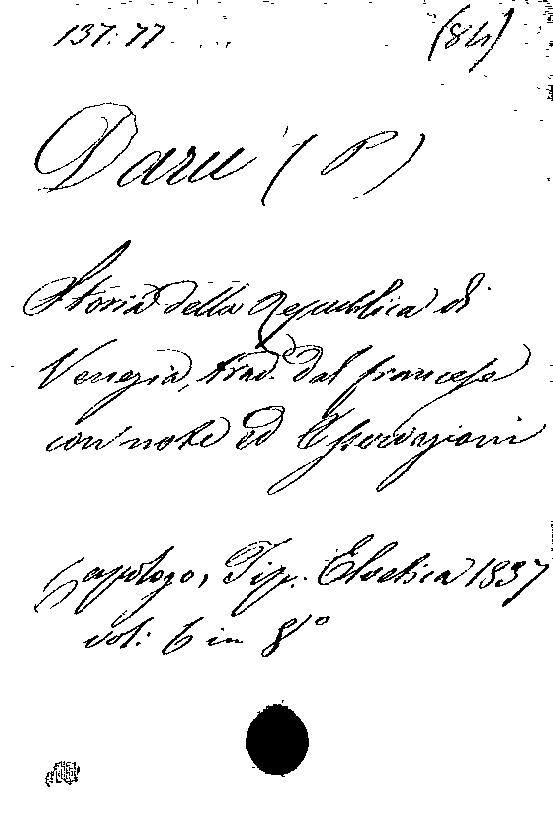 137. 77 (84)
Daru (P)
Storia della Republica di
Venezia, trad. dal francese
con note ed Osservazioni
Capolago, Tip. Elvetica 1837
vol: 6 in 8°